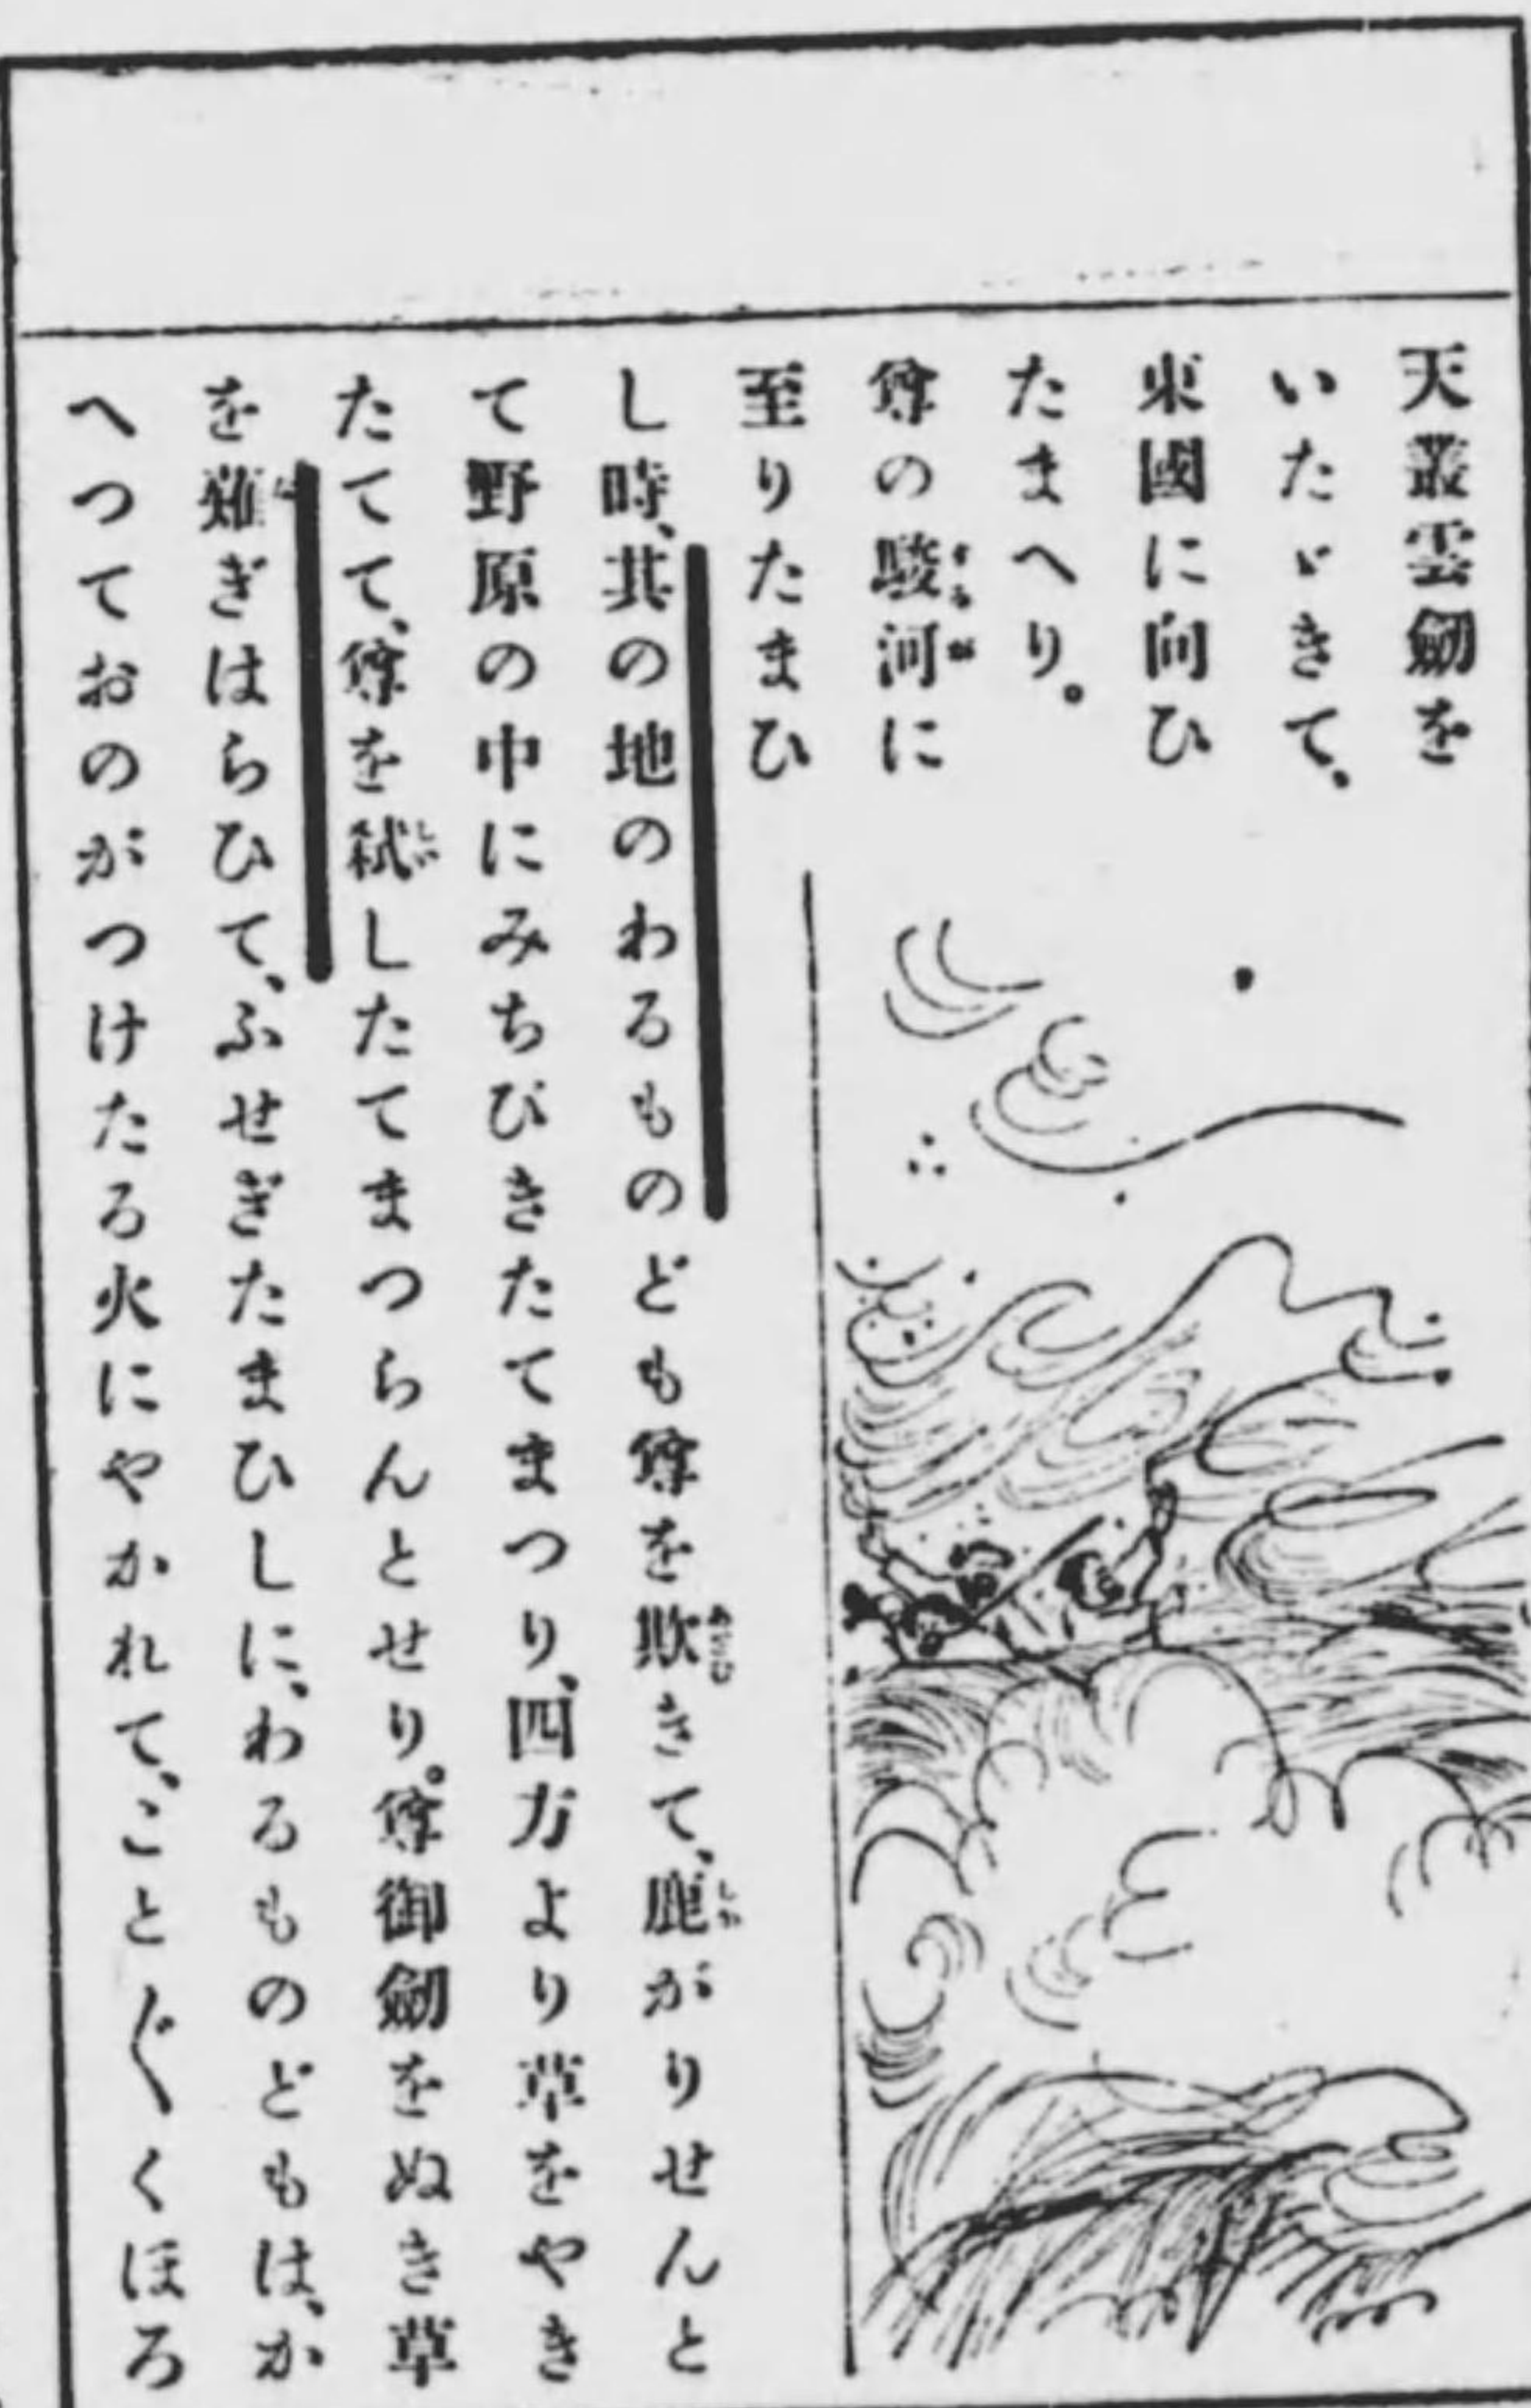 天叢雲劒を
いたゞきて、
東國に向ひ
たまへり。
尊の駿河に
至りたまひ
し時、其の地のわるものども尊を欺きて、鹿がりせんと
て野原の中にみちびきたてまつり、四方より草をやき
たてて、尊を弑したてまつらんとせり。尊御劒をぬき草
を薙ぎはらひて、ふせぎたまひしに、わるものどもは、か
へつておのがつけたる火にやかれて、こと〴〵くほろ